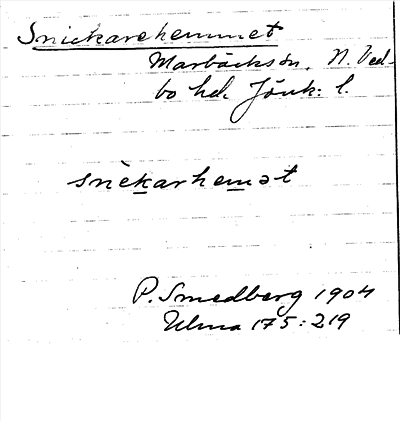 Snickarehemmet
Marbäcks sn, N. Ved-
bo hd. Jönk: l.
snèkarhemət
P. Smedberg 1904
Ulma 175:219